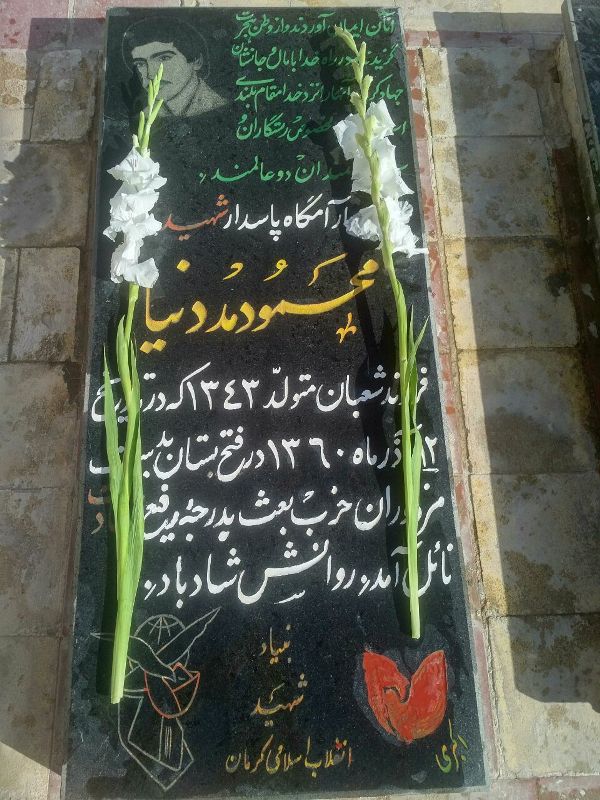 آنان ایمان آوردند و از وطن هجرت
گزیدند در راه خدا با مال و جانشان
جهاد کردند آنها را نزد خدا مقام بلندی
است بخصوص رستگاران و
دو عالمند
آرامگاه پاسدار شهید
محمود مددنیا
فرزند شعبان متولد ۱۳۴۳ که در تاریخ
۱۲ آذر ماه ۱۳۶۰ در فتح بستان بدست
مزدوران حزب بعث بدرجه رفیع
نائل آمد، روانش شاد باد،
بنیاد
شهید
انقلاب اسلامی کرمان